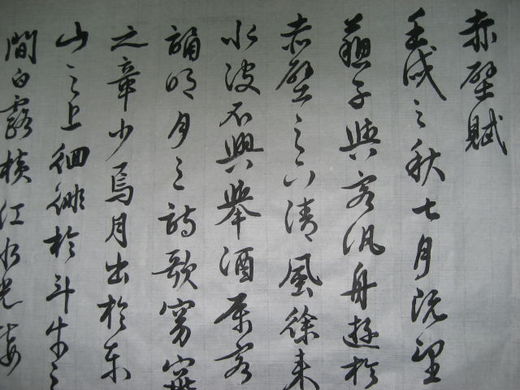 赤壁賦
壬戌之秋七月既望
蘇子與客汎舟遊於
赤壁之下清風徐來
水波不興舉酒屬客
誦明月之詩歌窈窕
之章少焉月出於東
山之上徊徘於斗牛之
間白露橫江水光接